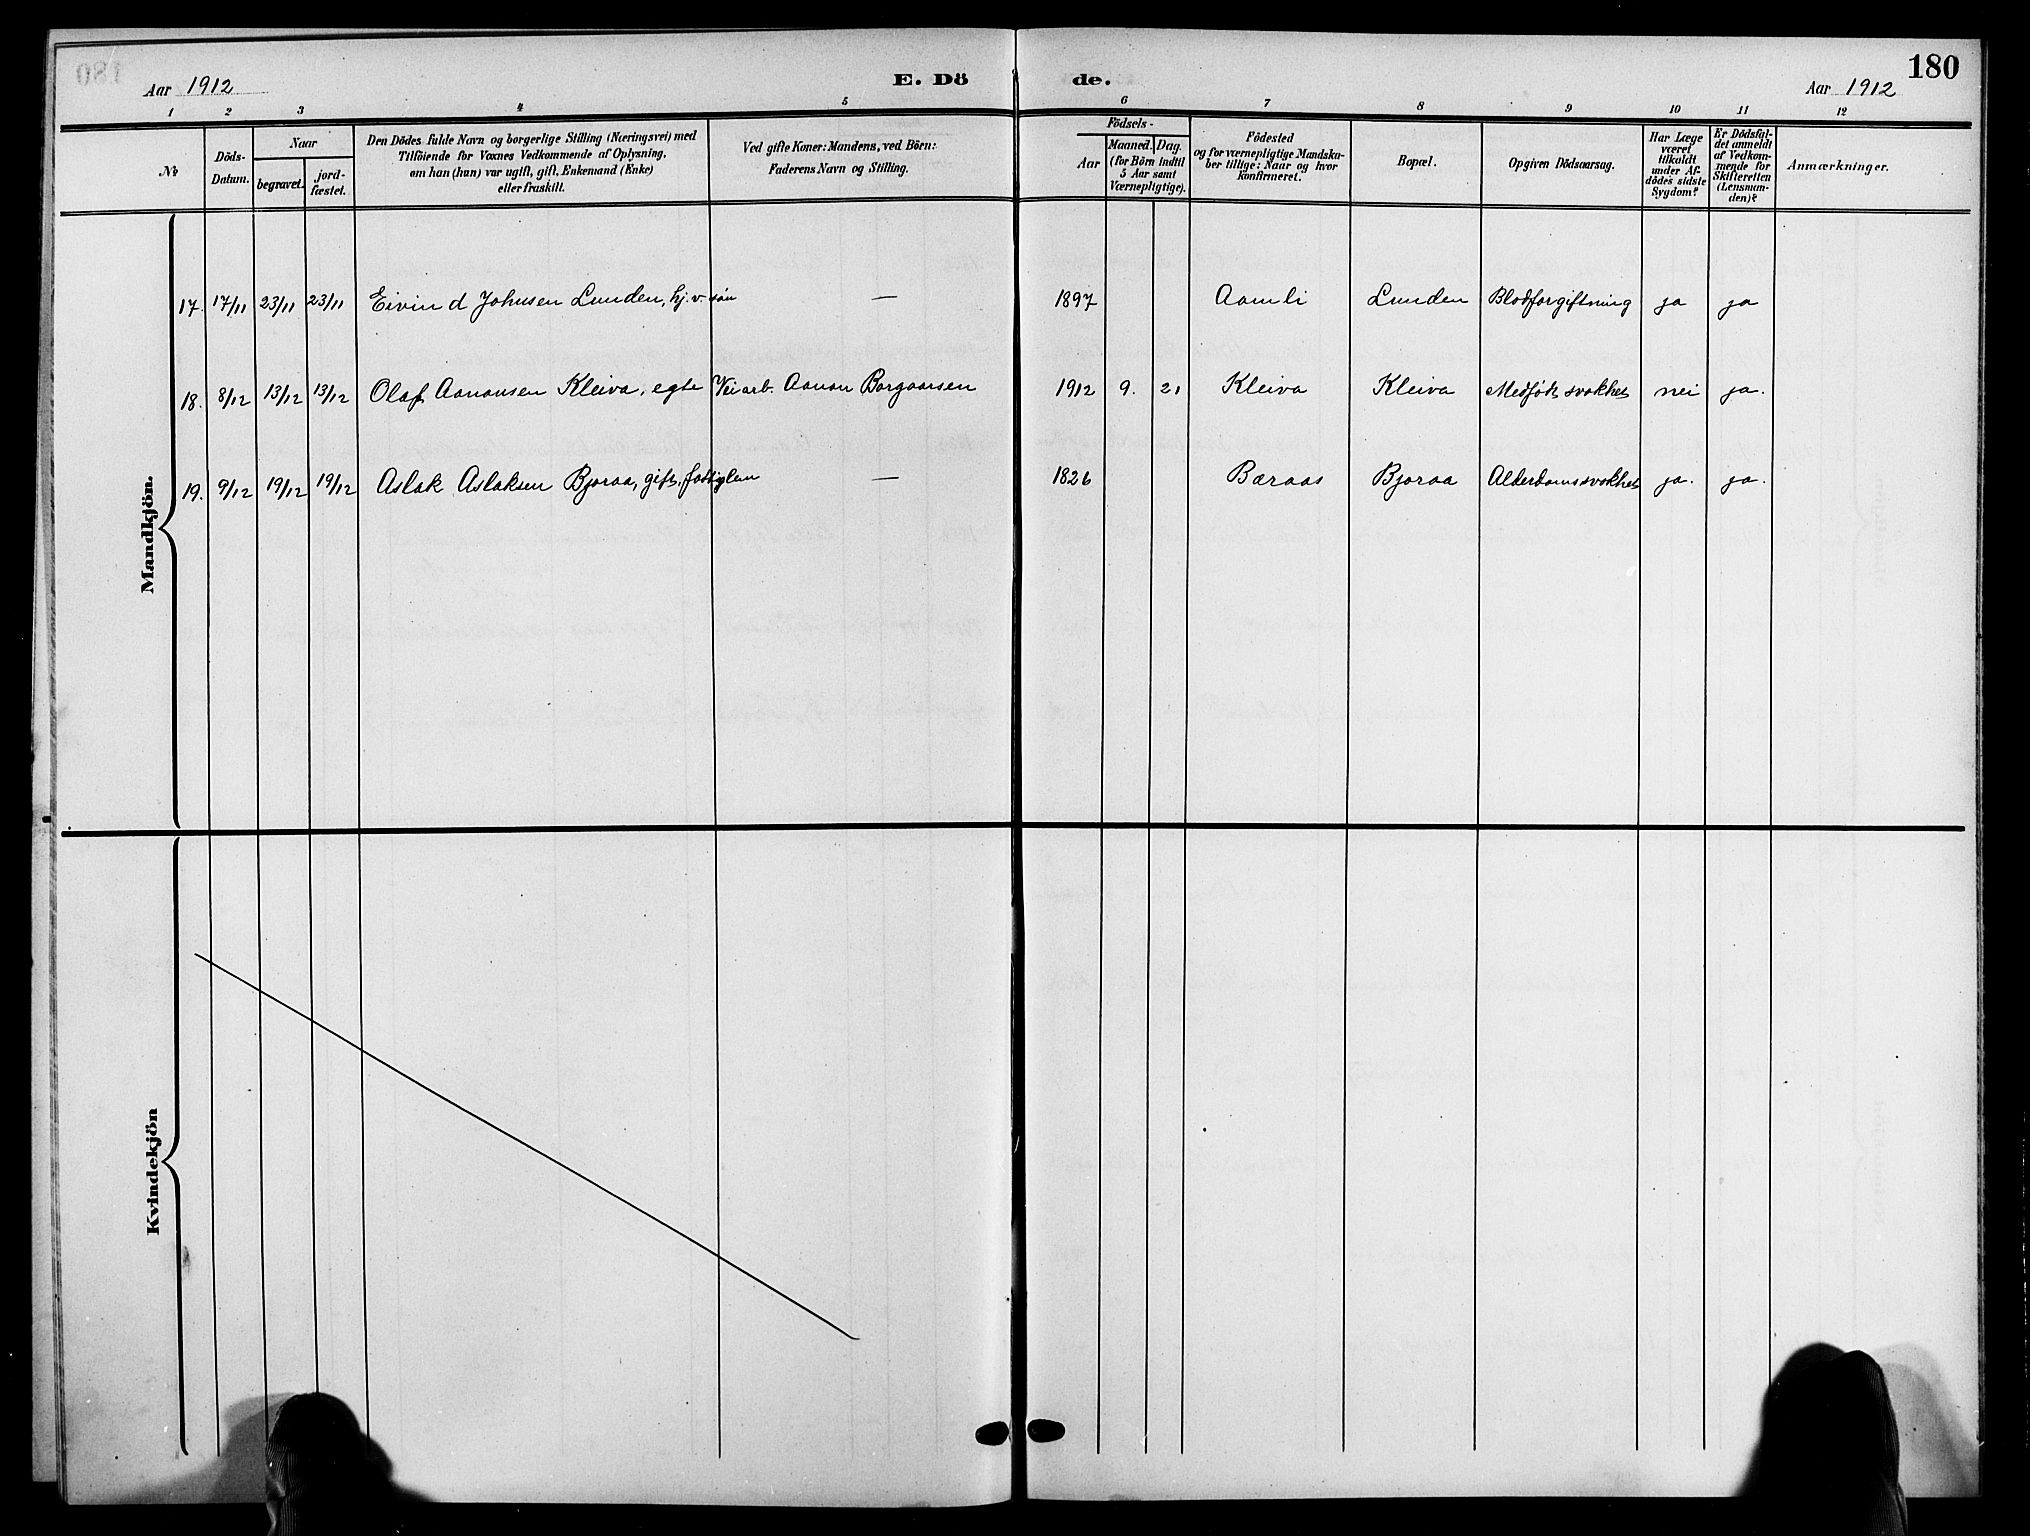 180
Aar 1912
E. Dö de.
Aar 1912
1 2 3 4 5 6 7 8 9 10 11 12
No
Döds-Datum.
Naar
begravet.
jord-fæstet.
Den Dödes fulde Navn og borgerlige Stilling (Næringsvei) med
Tilföiende for Voxnes Vedkommende af Oplysning,
om han (hun) var ugift, gift, Enkemand (Enke)
eller fraskilt.
Ved gifte Koner: Mandens, ved Börn:
Faderens Navn og Stilling.
Födsels-
Aar
Maaned. Dag.
(for Börn indtil
5 Aar samt
Værnepligtige).
Födested
og for værnepligtige Mandska-
ber tillige: Naar og hvor
konfirmeret.
Bopæl.
Opgiven Dödsaarsag.
Har Læge
været
tilkaldt
under Af-
dödes sidste
Sygdom?
Er Dödsfal-
det anmeldt
af Vedkom-
mende for
Skifteretten
(Lensman-
den)?
Anmærkninger.
Mandkjön.
17. 17/11 23/11 23/11 Eivind Johnsen Lunden, hj.v. søn — 1897 Aamli Lunden Blodforgiftning ja ja
18. 8/12 13/12 13/12 Olaf Aanonsen Kleiva, egte Veiarb. Aanon Borgaarsen 1912 9. 21 Kleiva Kleiva Medfødt svakhet nei ja.
19. 9/12 19/12 19/12 Aslak Aslaksen Bjoraa, gift, fattiglem — 1826 Bæraas Bjoraa Alderdomssvakhet ja. ja.
Kvindekjön